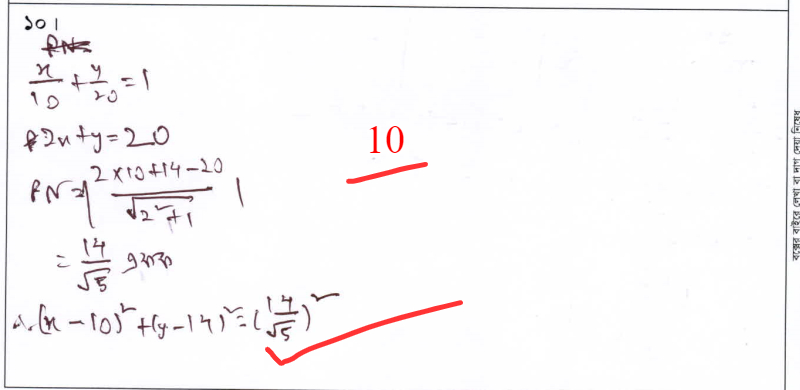 ১০।
x/10 + y/20 = 1
2x+y=20
10
PN = |(2×10+14-20)/√(2²+1)|
= 14/√5 একক
∴ (x-10)²+(y-14)²=(14/√5)²
বক্সের বাইরে লেখা বা দাগ দেয়া নিষেধ